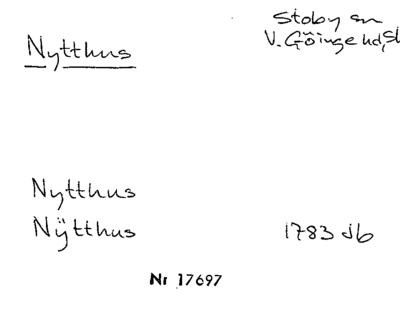 Nytthus
Stoby sn
V. Göinge hd, Sk
Nytthus
Nÿtthus
1783 Jb
Nr 17697